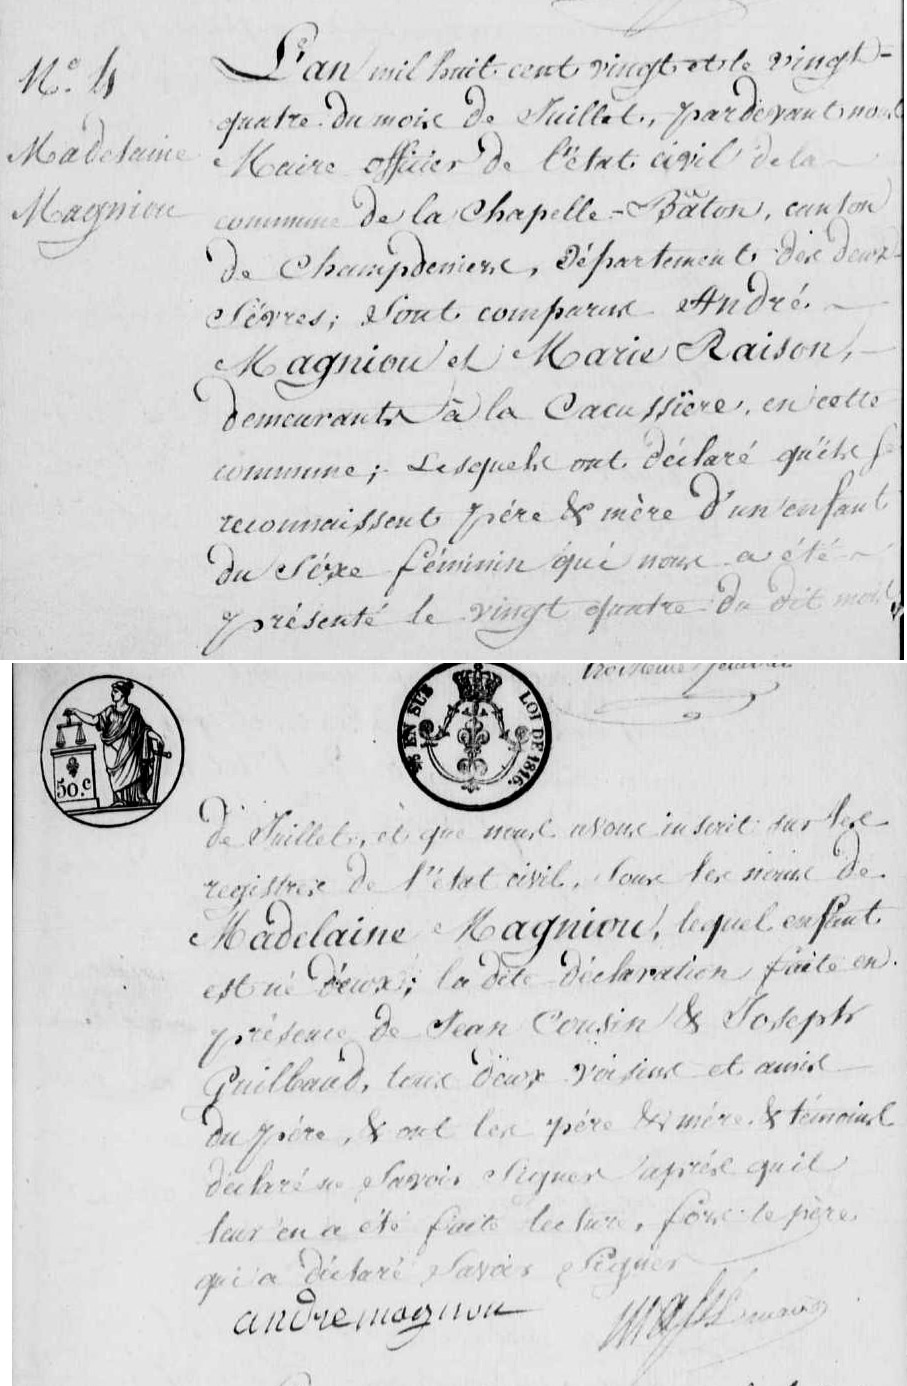 N.º 4
Madelaine
Magniou
L'an mil huit cent vingt et le vingt-
quatre du mois de Juillet, pardevant nous
Maire officier de l'état civil de la
commune de la Chapelle-Bâton, canton
de Champdeniers, Département des deux
Sèvres; Sont comparus André
Magniou et Marie Raison,
demeurants à la Cacussière, en cette
commune; Lesquels ont déclaré qu'ils se
reconnaissent père & mère d'un enfant
du Séxe féminin qui nous a été
présenté le vingt quatre du dit mois
EN SUS
LOI DE 1816.
50.c
de Juillet, et que nous avons inscrit sur les
registres de l'état civil, sous les noms de
Madelaine Magniou, lequel enfant
est né d'eux; la dite déclaration faite en
présence de Jean Cousin & Joseph
Guilbaud, tous deux voisins et amis
du père, & ont les père & mère & témoins
déclaré ne Savoir Signer après qu'il
leur en a été faite lecture, fors le père
qui a déclaré Savoir Signer
andremagnou
maire